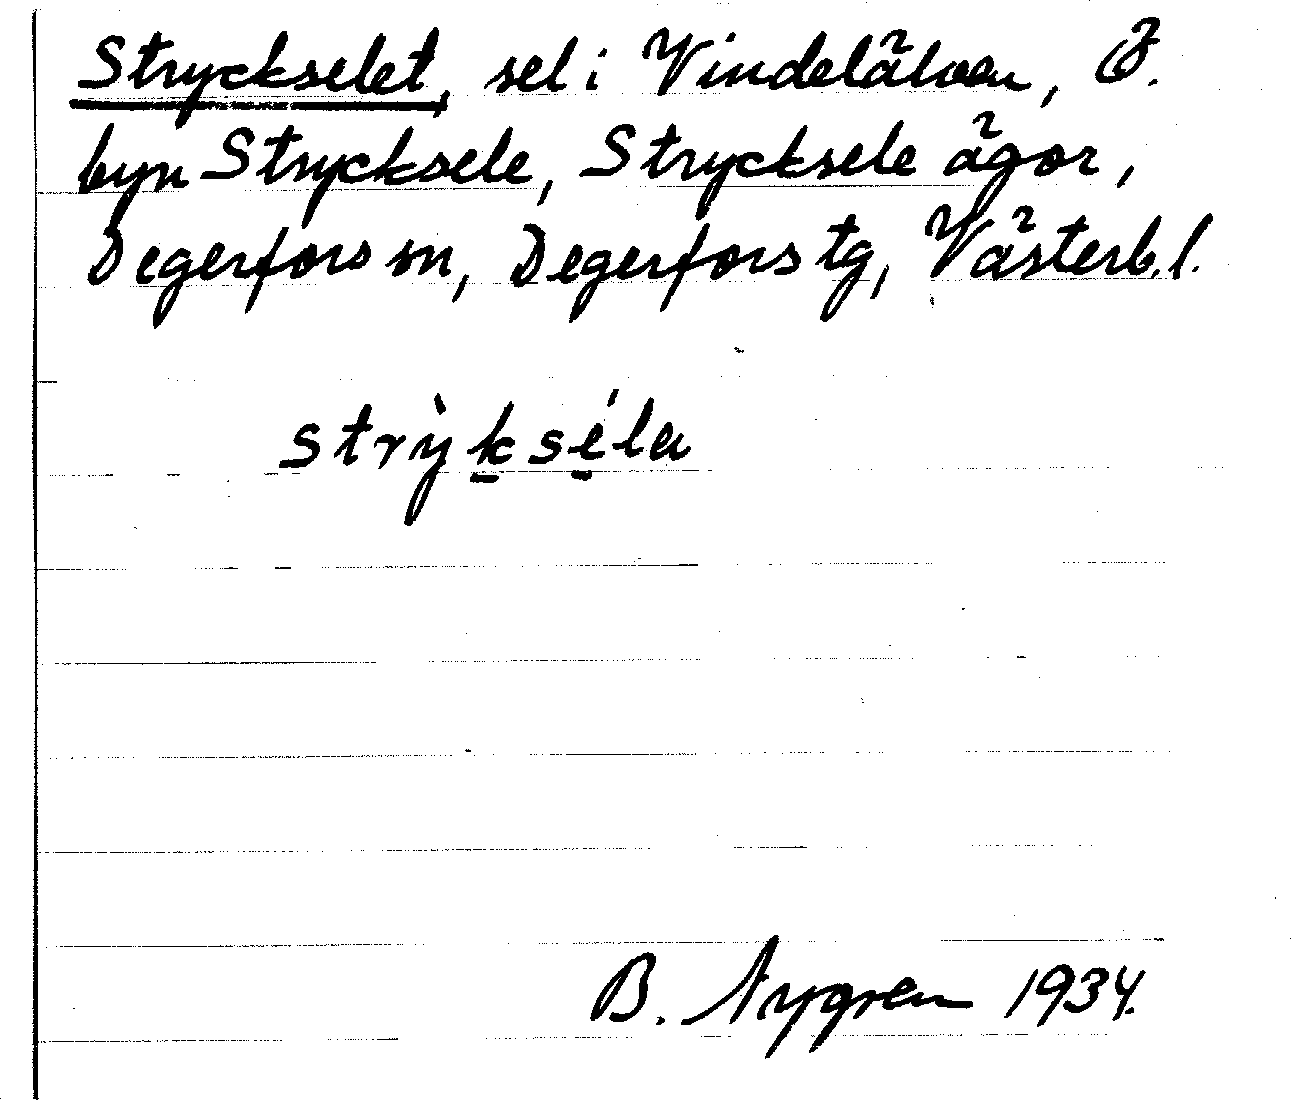 Stryckselet, sel i Vindelälven, Ö.
byn Strycksele, Strycksele ägor,
Degerfors sn, Degerfors tg, Västerb. l.
strỳkséla
B. Nygren 1934.